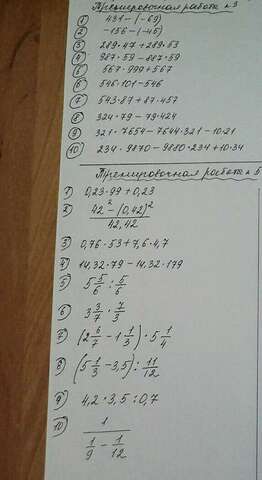 Тренировочная работа №3
1) 431 - (-69)
2) -156 - (-45)
3) 289·47 + 289·53
4) 987·59 - 887·59
5) 567·999 + 567
6) 546·101 - 546
7) 543·87 + 87·457
8) 324·79 - 79·424
9) 321·7654 - 7644·321 - 10·21
10) 234·9870 - 9880·234 + 10·34
Тренировочная работа №5
1) 0,23·99 + 0,23
2) (42² - (0,42)²) / 42,42
3) 0,76·53 + 7,6·4,7
4) 14,32·79 - 14,32·179
5) 5 5/6 : 5/6
6) 3 3/7 · 7/3
7) (2 6/7 - 1 1/3) · 5 1/4
8) (5 1/3 - 3,5) : 11/12
9) 4,2·3,5 : 0,7
10) 1 / (1/9 - 1/12)